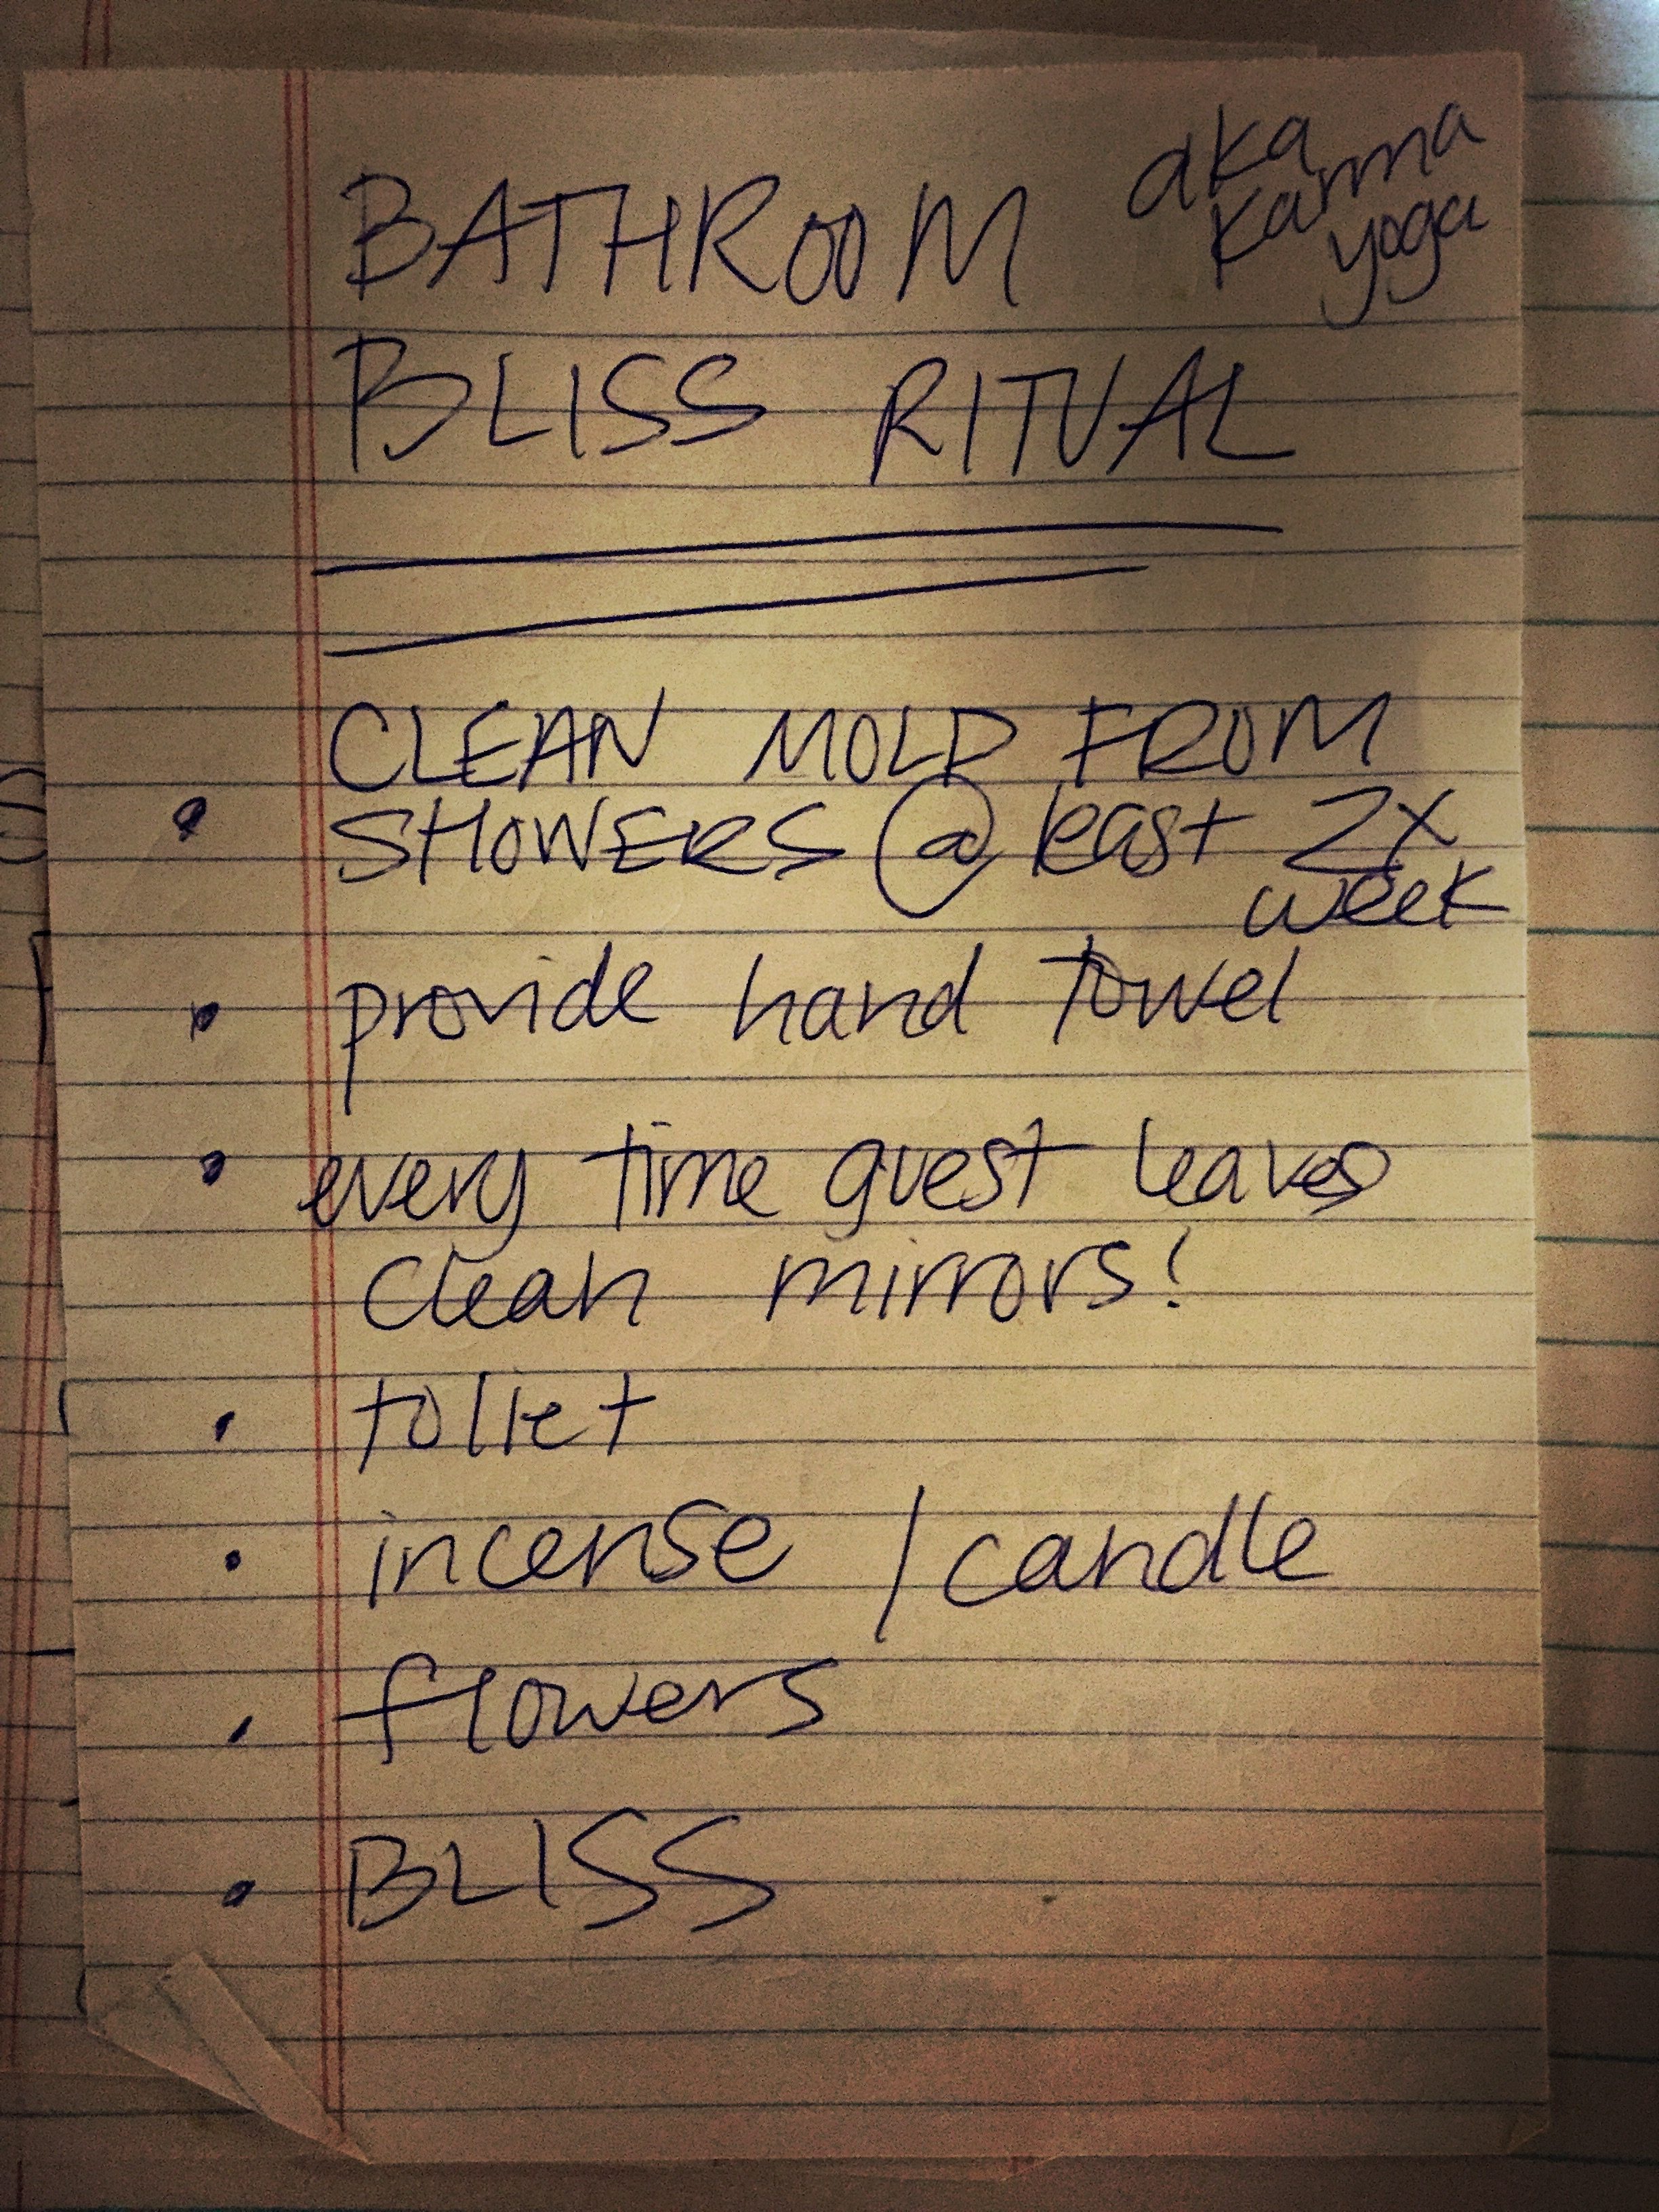 BATHROOM aka
karma
yoga
BLISS RITUAL
CLEAN MOLD FROM
• SHOWERS @ least 2x
week
• provide hand towel
• every time guest leaves
clean mirrors!
• toliet
• incense / candle
• flowers
• BLISS